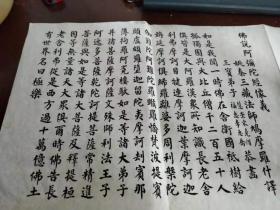 佛說阿彌陀經
姚秦三藏法師鳩摩羅什譯
三寶弟子
如是我聞一時佛在舍衛國祇樹給
孤獨園與大比丘僧千二百五十人
俱皆是大阿羅漢眾所知識長老舍
利弗摩訶目犍連摩訶迦葉摩訶迦
旃延摩訶俱絺羅離婆多周利槃陀
伽難陀阿難陀羅睺羅憍梵波提賓
頭盧頗羅墮迦留陀夷摩訶劫賓那
薄拘羅阿㝹樓馱如是等諸大弟子
并諸菩薩摩訶薩文殊師利法王子
阿逸多菩薩乾陀訶提菩薩常精進
菩薩與如是等諸大菩薩及釋提桓
因等無量諸天大眾俱爾時佛告長
老舍利弗從是西方過十萬億佛土
有世界名曰極樂